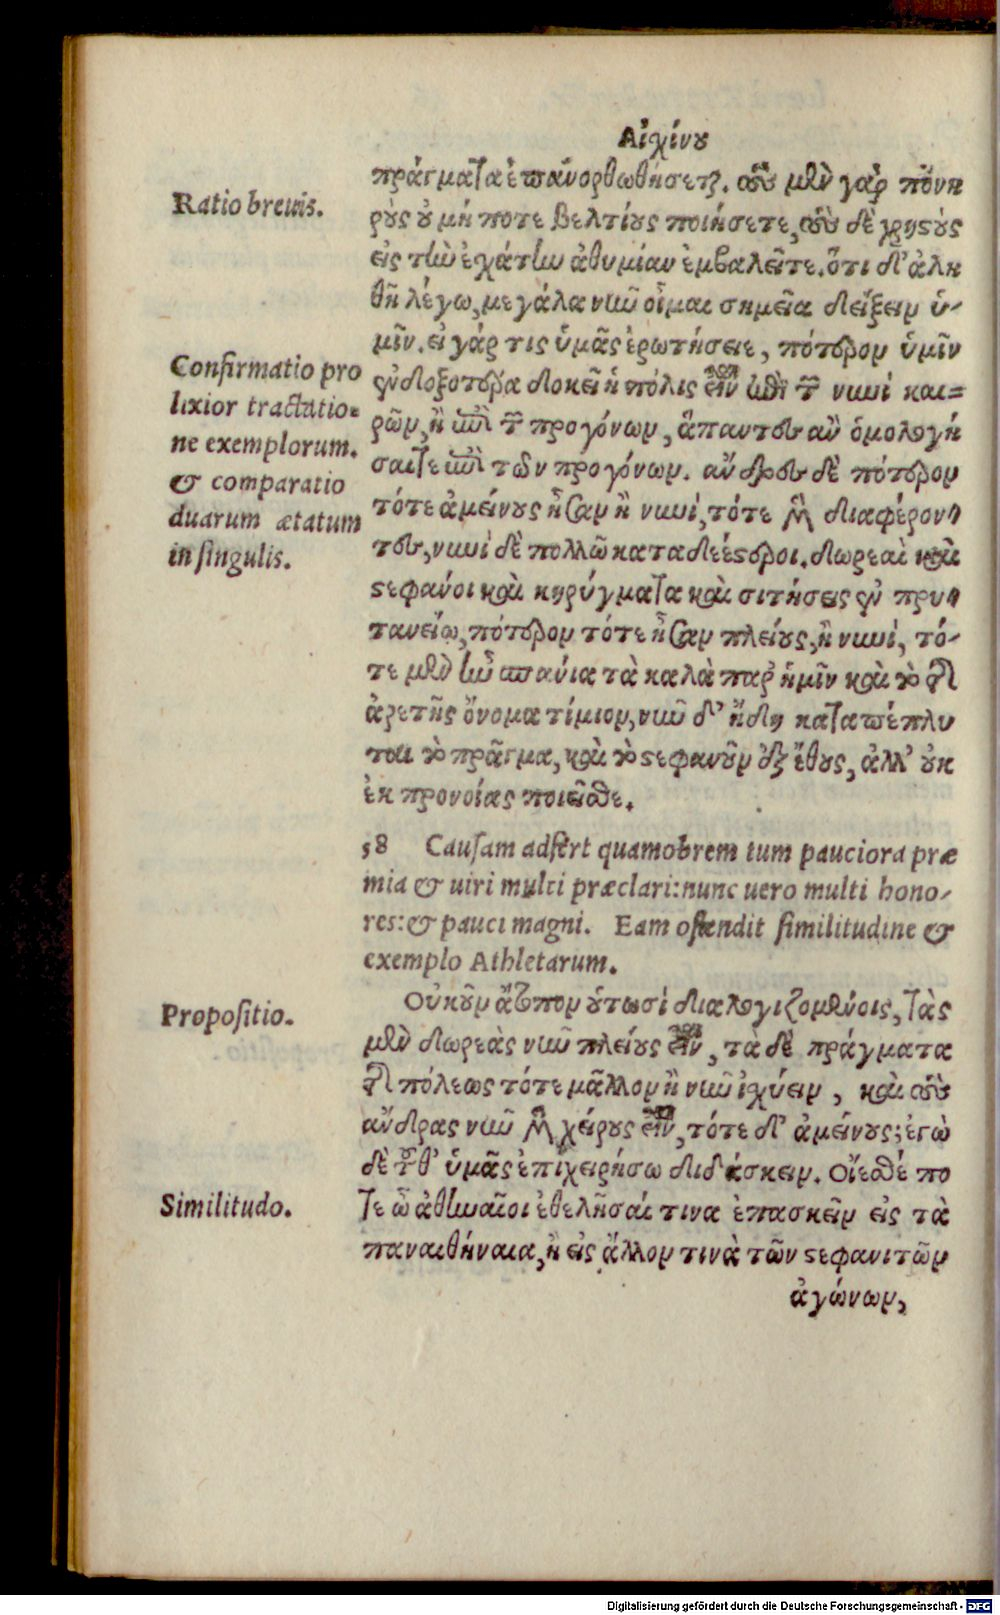 Αἰχίνου
πράγματα ἐπανορθωθήσεται. τοὺς μὲν γὰρ πονη
ροὺς οὐ μή ποτε βελτίους ποιήσετε, τοὺς δὲ χρηστοὺς
εἰς τὴν ἐχάτην ἀθυμίαν ἐμβαλεῖτε. ὅτι δ' ἀλη
θῆ λέγω, μεγάλα νῦν οἶμαι σημεῖα δείξειν ὑ-
μῖν. εἰ γάρ τις ὑμᾶς ἐρωτήσειε, πότερον ὑμῖν
ἐνδοξοτέρα δοκεῖ ἡ πόλις εἶναι ἐπὶ τῶν νυνὶ και=
ρῶν, ἢ ἐπὶ τῶν προγόνων, ἅπαντες ἂν ὁμολογή
σαιτε ἐπὶ τῶν προγόνων. ἄνδρες δὲ πότερον
τότε ἀμείνους ἦσαν ἢ νυνὶ, τότε μὲν διαφέρον-
τες, νυνὶ δὲ πολλῷ καταδεέστεροι. δωρεαὶ καὶ
στεφάνοι καὶ κηρύγματα καὶ σιτήσεις ἐν πρυ-
τανείῳ, πότερον τότε ἦσαν πλείους, ἢ νυνὶ, τό-
τε μὲν ἦν σπάνια τὰ καλὰ παρ' ἡμῖν καὶ τὸ τῆς
ἀρετῆς ὄνομα τίμιον, νῦν δ' ἤδη καταπέπλυ
ται τὸ πρᾶγμα, καὶ τὸ στεφανοῦν ἐξ ἔθους, ἀλλ' οὐκ
ἐκ προνοίας ποιεῖσθε.
58 Causam adfert quamobrem tum pauciora præ
mia & uiri multi præclari: nunc uero multi hono-
res: & pauci magni. Eam ostendit similitudine &
exemplo Athletarum.
Οὐκοῦν ἄτοπον οὑτωσὶ διαλογιζομένοις, τὰς
μὲν δωρεὰς νῦν πλείους εἶναι, τὰ δὲ πράγματα
τῆς πόλεως τότε μᾶλλον ἢ νῦν ἰχύειν, καὶ τοὺς
ἄνδρας νῦν μὲν χείρους εἶναι, τότε δ' ἀμείνους; ἐγὼ
δὲ τοῦθ' ὑμᾶς ἐπιχειρήσω διδάσκειν. Οἴεσθέ πο
τε ὦ ἀθηναῖοι ἐθελῆσαί τινα ἐπασκεῖν εἰς τὰ
παναθήναια, ἢ εἰς ἄλλον τινὰ τῶν στεφανιτῶν
ἀγώνων,
Ratio breuis.
Confirmatio pro
lixior tractatio=
ne exemplorum.
& comparatio
duarum ætatum
in singulis.
Propositio.
Similitudo.
Digitalisierung gefördert durch die Deutsche Forschungsgemeinschaft - DFG